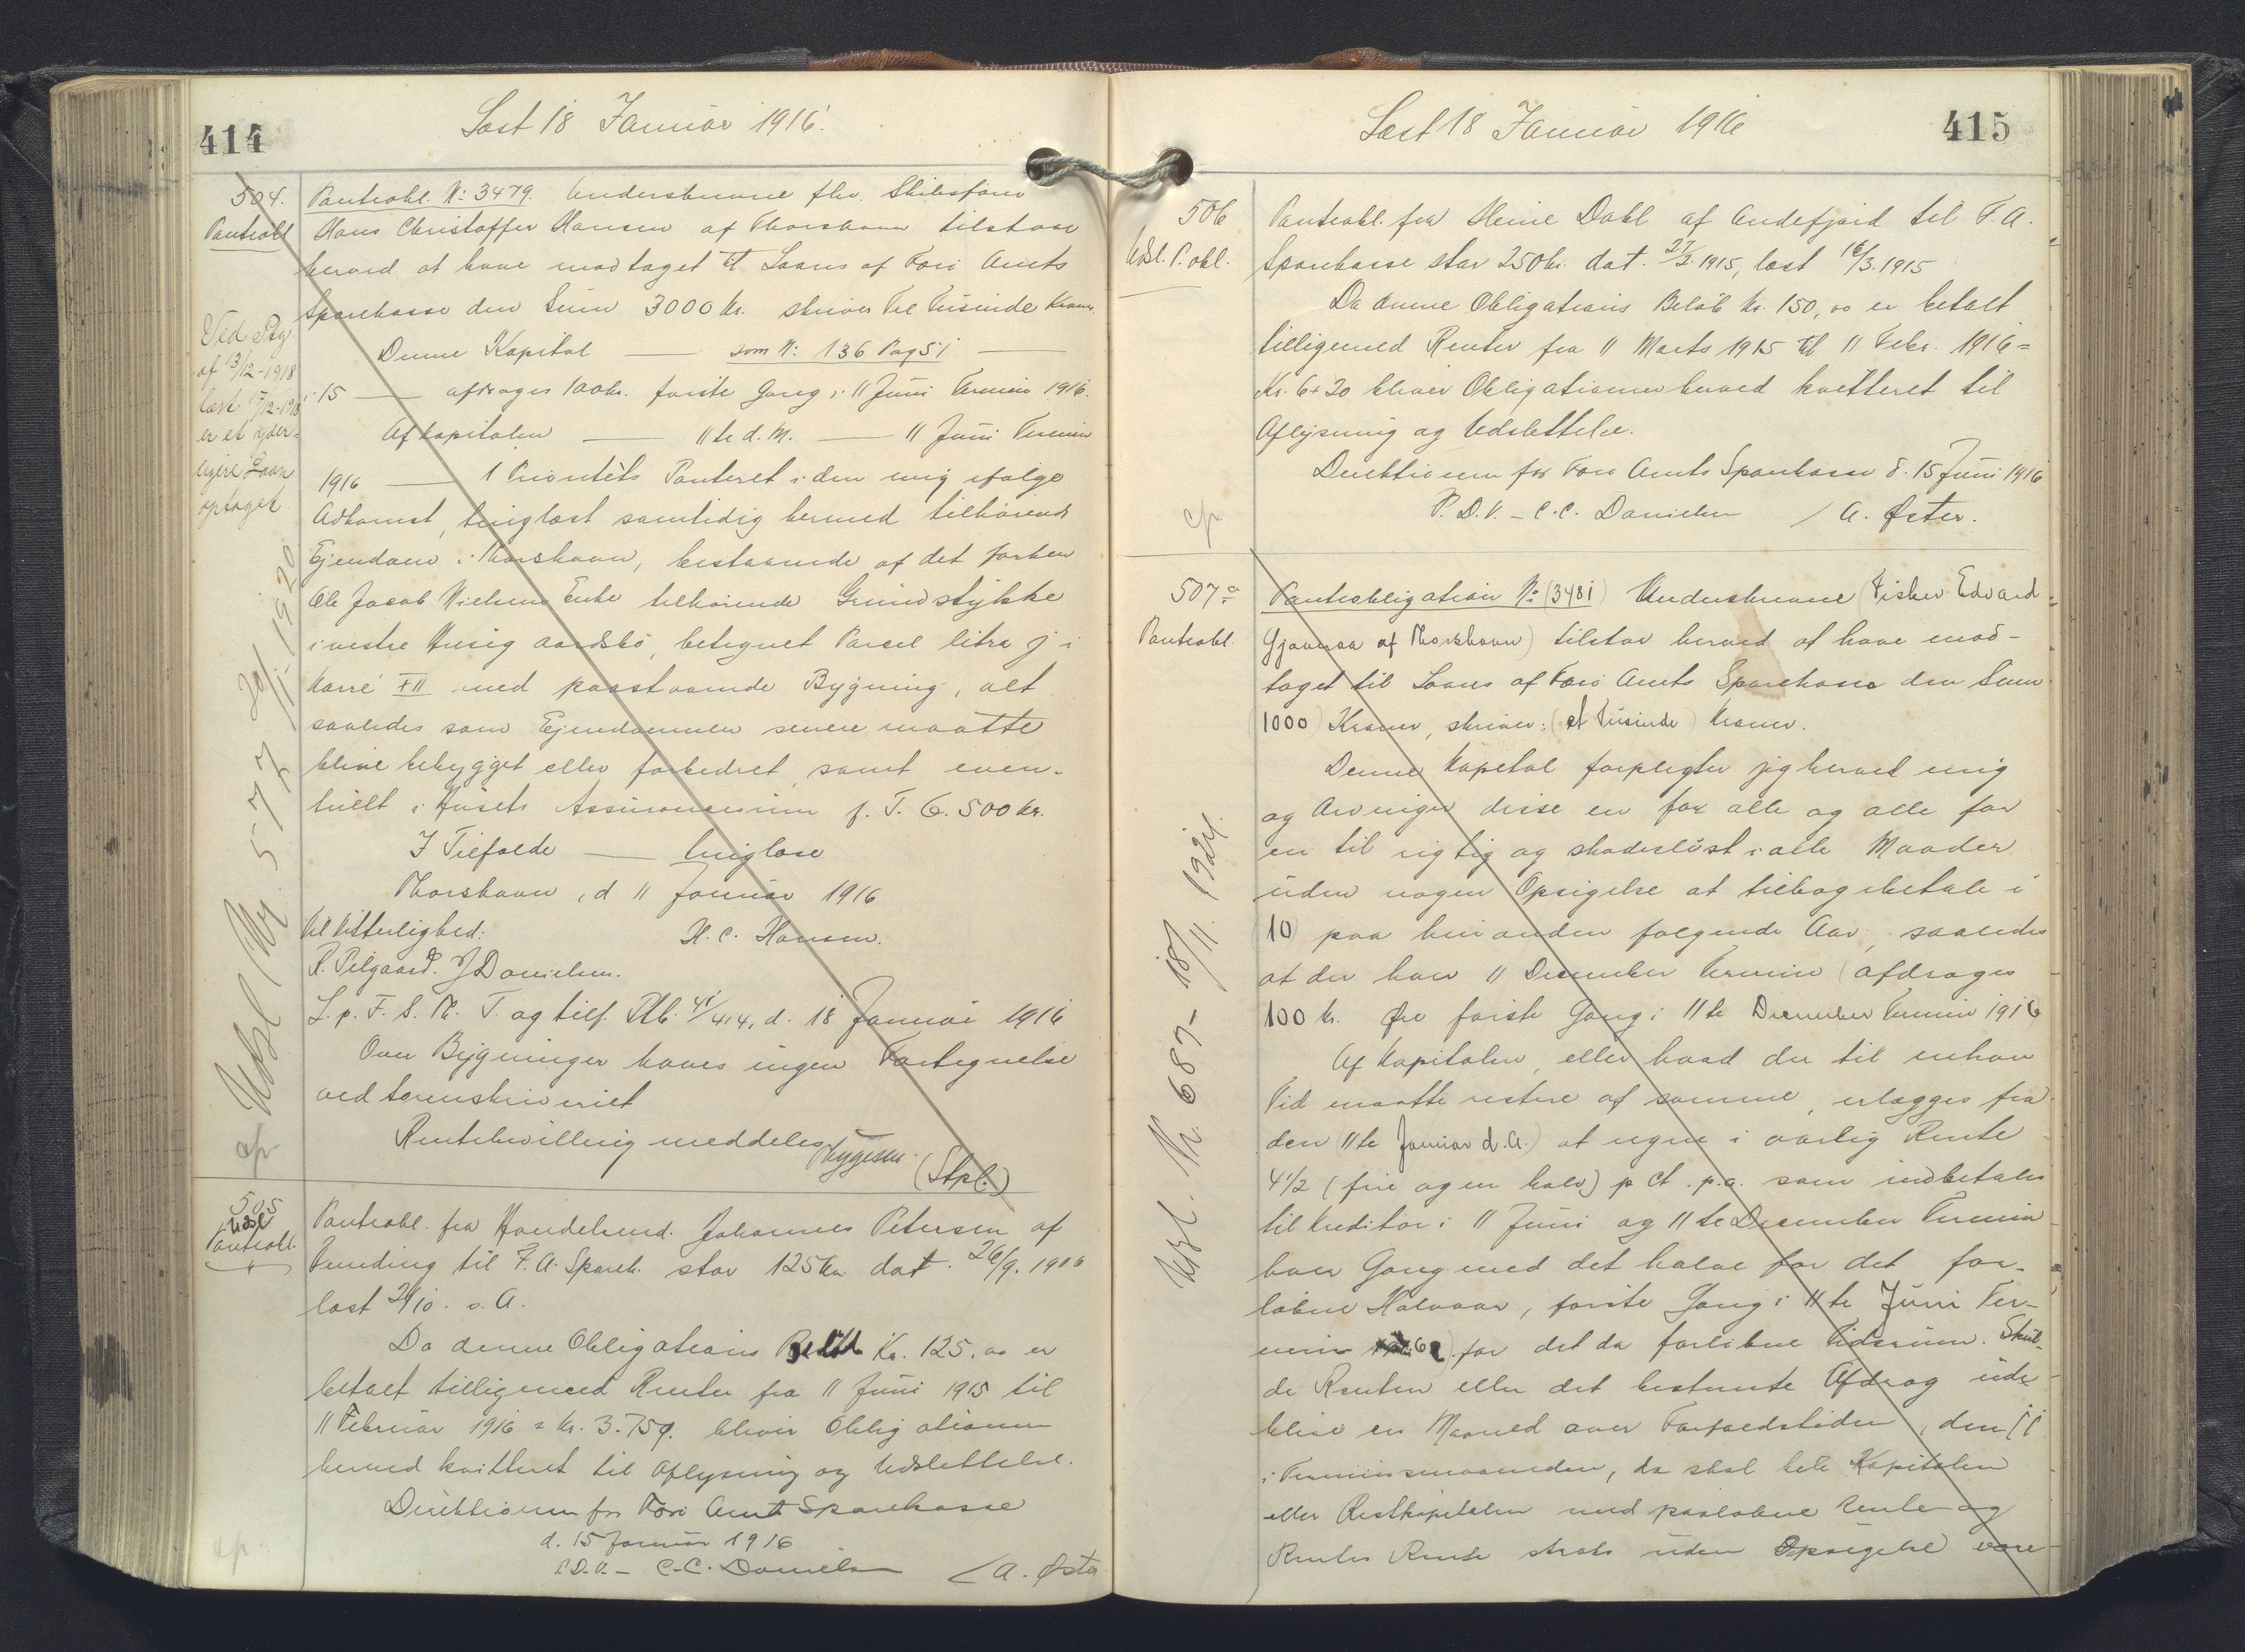 414
Læst 18 Januar 1916.
504.
Pantobl
Pantobl. No: 3479. Underskrevne fhv. Skibsfører
Hans Christoffer Hansen af Thorshavn tilstaar
herved at have modtaget til Laans af Færø Amts
Sparekasse den Sum 3000 Kr. skriver Tre Tusinde Kroner.
Denne Kapital — som No: 136 Pag 51 —
i 15 — afdrages 100 kr. første Gang i 11 Juni Termin 1916.
Af Kapitalen — 11te d. M. — 11 Juni Termin
1916 — 1 Prioritets Panteret i den mig ifølge
Adkomst, tinglæst samtidig hermed tilhørende
Ejendom i Thorshavn, bestaaende af det forhen
Ole Jacob Nielsens Enke tilhørende Grundstykke
i vestre Húsig aardsbø, betegnet Parcel litra j i
Karré XII med paastaaende Bygning, alt
saaledes som Ejendommen senere maatte
blive bebygget eller forbedret, samt even-
tuelt i Husets Assurancesum f. T. 6.500 Kr.
I Tilfælde — tinglæse
Thorshavn, d 11 Januar 1916
H. C. Hansen.
Til Vitterlighed:
R. Pilgaard. J Danielsen.
L. p. F. S. Th. T. og tilf. Ptb. 41/414, d. 18 Januar 1916
Over Bygninger haves ingen Fortegnelse
ved Sorenskriveriet
Rentebevilling meddeles
Trygesen.
(Stpl.)
Ved Ptg.
af 13/12-1918
læst 17/12-1918
er et yder-
ligere Laan
optaget.
Udsl. No. 577 20/11. 1920
cfr.
505
Udsl
Pantobl.
Pantobl. fra Handelsmd. Johannes Petersen af
Funding til F. A. Sparek. stor 125 Kr. dat. 26/9. 1906
læst 2/10. s. A.
Da denne Obligations Beløb Kr. 125,00 er
betalt tilligemed Renter fra 11 Juni 1915 til
11 Februar 1916 = Kr. 3.75ø. bliver Obligationen
herved kvitteret til Aflysning og Udslettelse.
Direktionen for Færø Amts Sparekasse
d. 15 Januar 1916
P.D.V. — C.C. Danielsen / A. Øster
cfr.
Læst 18 Januar 1916
415
506
Udsl. P. obl.
Pantobl. fra Heine Dahl af Andefjord til F. A.
Sparekasse stor 250 kr. dat. 27/2. 1915, læst 16/3. 1915
Da denne Obligations Beløb Kr. 150,00 er betalt
tilligemed Renter fra 11 Marts 1915 til 11 Febr. 1916 =
Kr. 6+20 bliver Obligationen herved kvitteret til
Aflysning og Udslettelse.
Direktionen for Færø Amts Sparekasse d. 15 Juni 1916
P. D. V. — C. C. Danielsen / A. Øster.
cfr.
507a
Pantobl.
Pantobligation No (3481) Underskrevne (Fisker Edvard
Gjaanoa af Thorshavn) tilstaar herved at have mod-
taget til Laans af Færø Amts Sparekasse den Sum
1000) Kroner, skriver: (et Tusinde) Kroner.
Denne Kapital forpligter jeg herved mig
og Arvinger disse en for alle og alle for
en til rigtig og skadesløst i alle Maader
uden nogen Opsigelse at tilbagebetale i
10) paa hinanden følgende Aar, saaledes
at der hver 11 December Termin (afdrages
100 kr. Øre første Gang i 11te December Termin 1916
Af Kapitalen, eller hvad der til enhver
Tid maatte restere af samme, erlægges fra
den (11te Januar d. A.) at regne i aarlig Rente
4 1/2 (fire og en halv) p Ct. p.a. som indbetales
til Kreditor i 11 Juni og 11te December Termin
hver Gang med det halve for det for-
løbne Halvaar, første Gang i 11te Juni Ter-
min for det da forløbne Tidsrum. Skul-
de Renten eller det bestemte Afdrag ude-
blive en Maaned over Forfaldstiden, den 11
i Terminsmaaneden, da skal hele Kapitalen
eller Restkapitalen med paaløbne Rente og
Renters Rente straks uden Opsigelse være
Udsl. No. 687- 18/11. 1924.